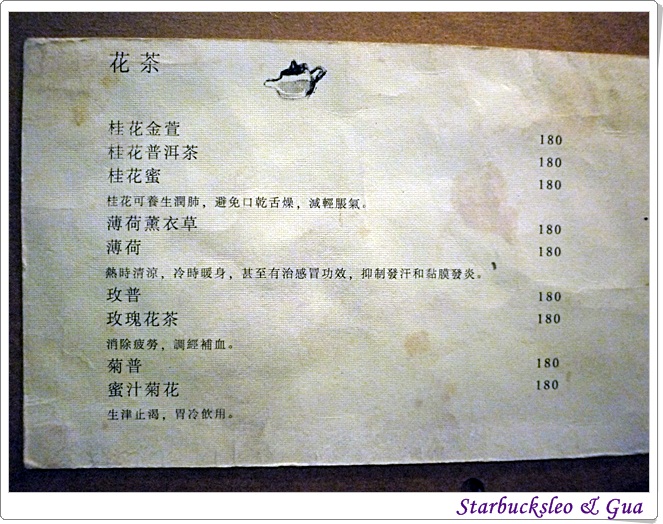 花茶
桂花金萱 180
桂花普洱茶 180
桂花蜜 180
桂花可養生潤肺，避免口乾舌燥，減輕脹氣。
薄荷薰衣草 180
薄荷 180
熱時清涼，冷時暖身，甚至有治感冒功效，抑制發汗和黏膜發炎。
玫普 180
玫瑰花茶 180
消除疲勞，調經補血。
菊普 180
蜜汁菊花 180
生津止渴，胃冷飲用。
Starbucksleo & Gua